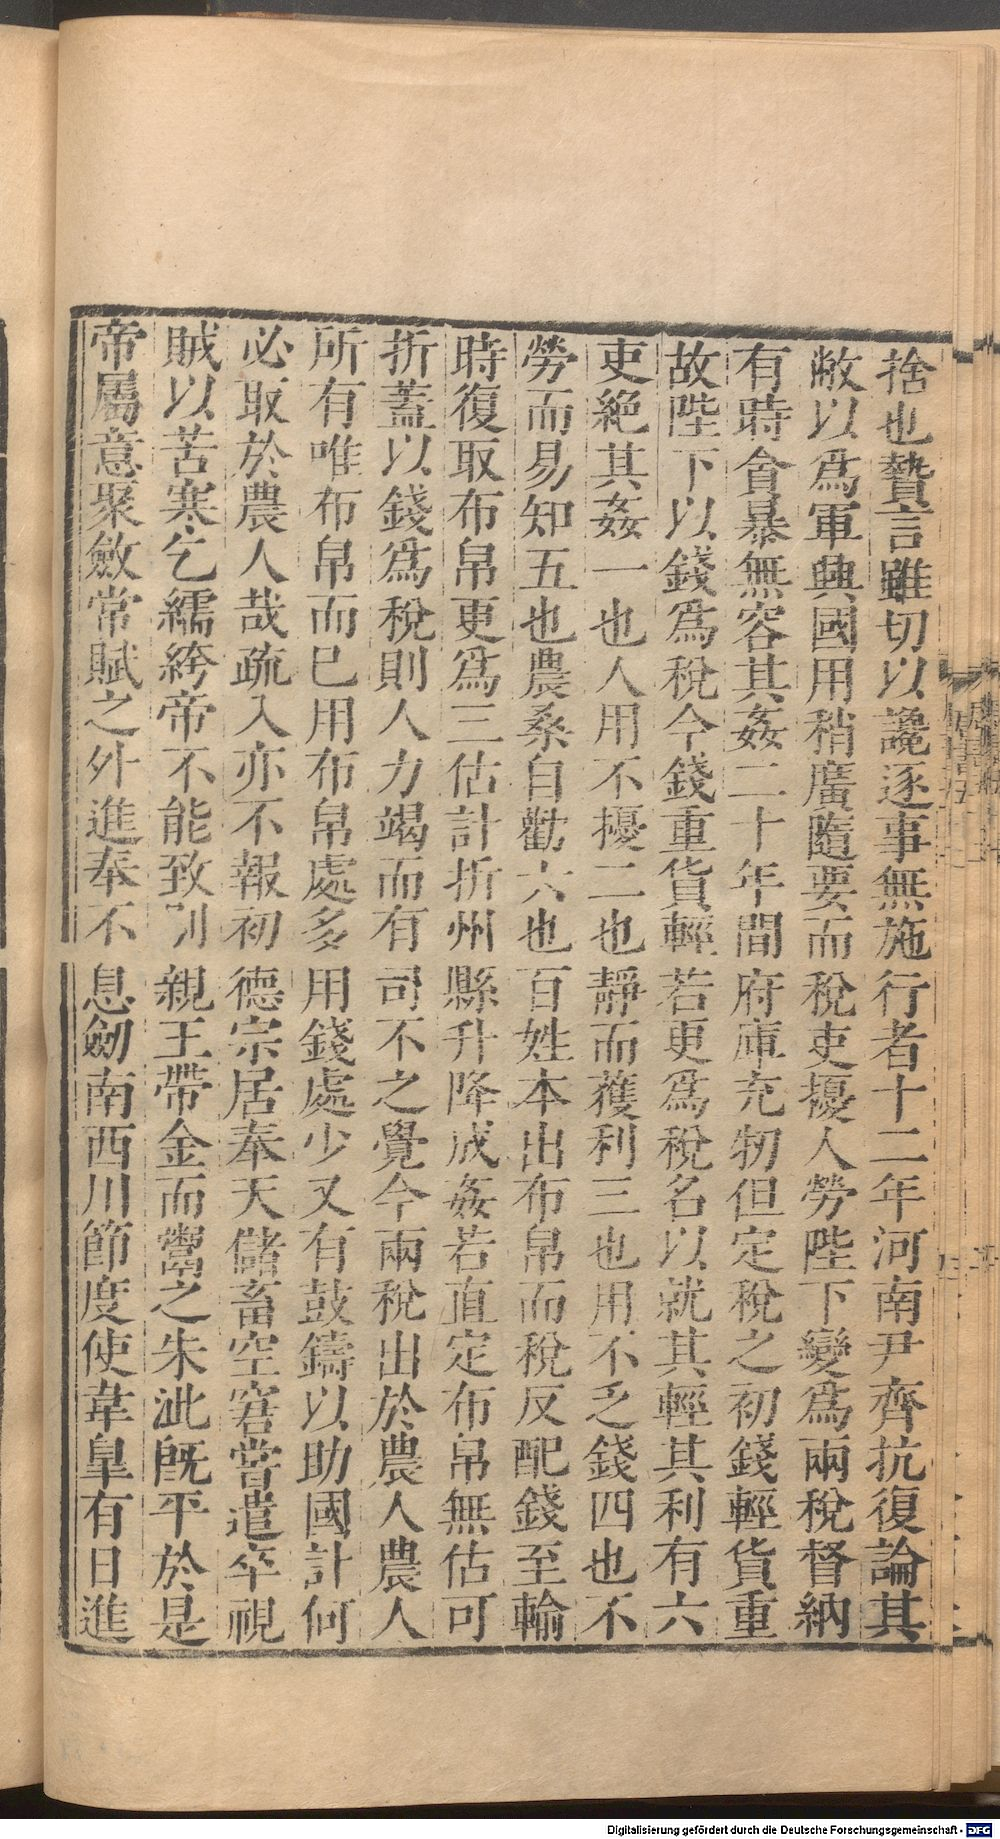 捨也贄言雖切以讒逐事無施行者十二年河南尹齊抗復論其
敝以爲軍興國用稍廣隨要而稅吏擾人勞陛下變爲兩稅督納
有時貪暴無容其姦二十年間府庫充牣但定稅之初錢輕貨重
故陛下以錢爲稅今錢重貨輕若更爲稅名以就其輕其利有六
吏絕其姦一也人用不擾二也靜而獲利三也用不乏錢四也不
勞而易知五也農桑自勸六也百姓本出布帛而稅反配錢至輸
時復取布帛更爲三估計折州縣升降成姦若直定布帛無估可
折蓋以錢爲稅則人力竭而有司不之覺今兩稅出於農人農人
所有唯布帛而已用布帛處多用錢處少又有鼓鑄以助國計何
必取於農人哉疏入亦不報初德宗居奉天儲畜空窘嘗遣卒視
賊以苦寒乞襦袴帝不能致剔親王帶金而鬻之朱泚旣平於是
帝屬意聚斂常賦之外進奉不息劒南西川節度使韋皋有日進
Digitalisierung gefördert durch die Deutsche Forschungsgemeinschaft - DFG